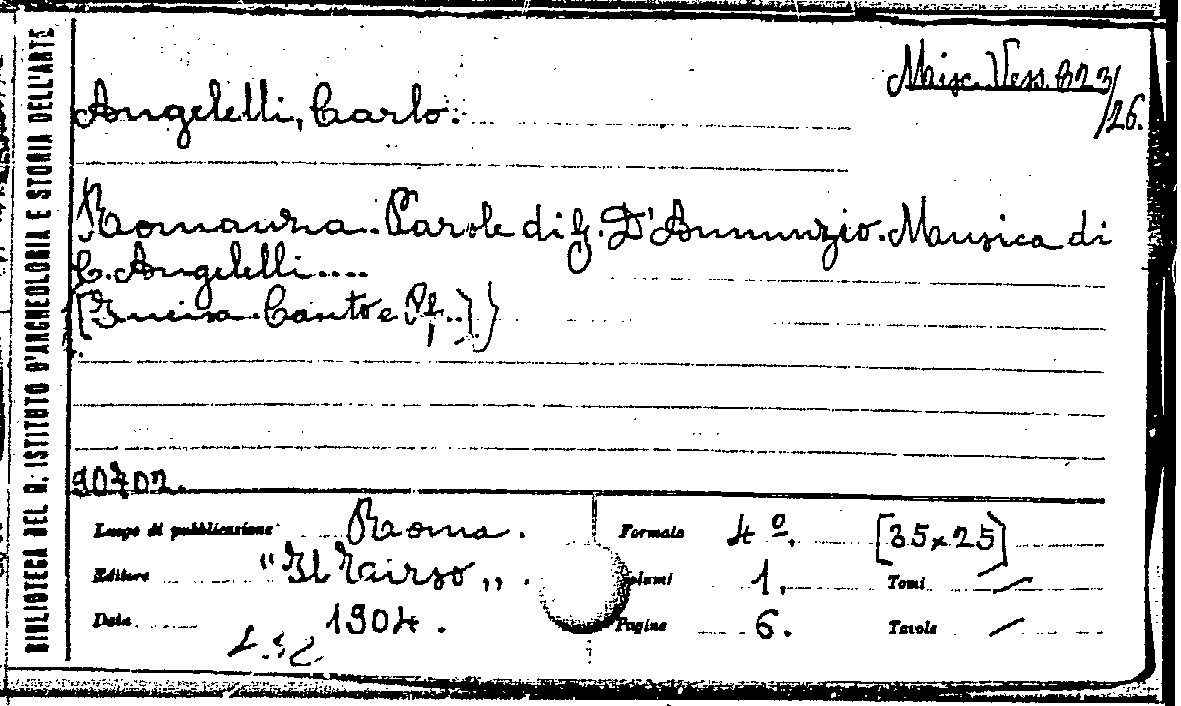 BIBLIOTECA DEL R. ISTITUTO D'ARCHEOLOGIA E STORIA DELL'ARTE
Misc. Vess. 823/26.
Angelelli, Carlo.
Romanza. Parole di G. D'Annunzio. Musica di
C. Angelelli....
[Incisa. Canto e Pf..]
90702.
Luogo di pubblicazione Roma.
Editore "Il Tirso".
Data 1904.
Formato 4º. [35x25]
Volumi 1. Tomi /
Pagine 6. Tavole /